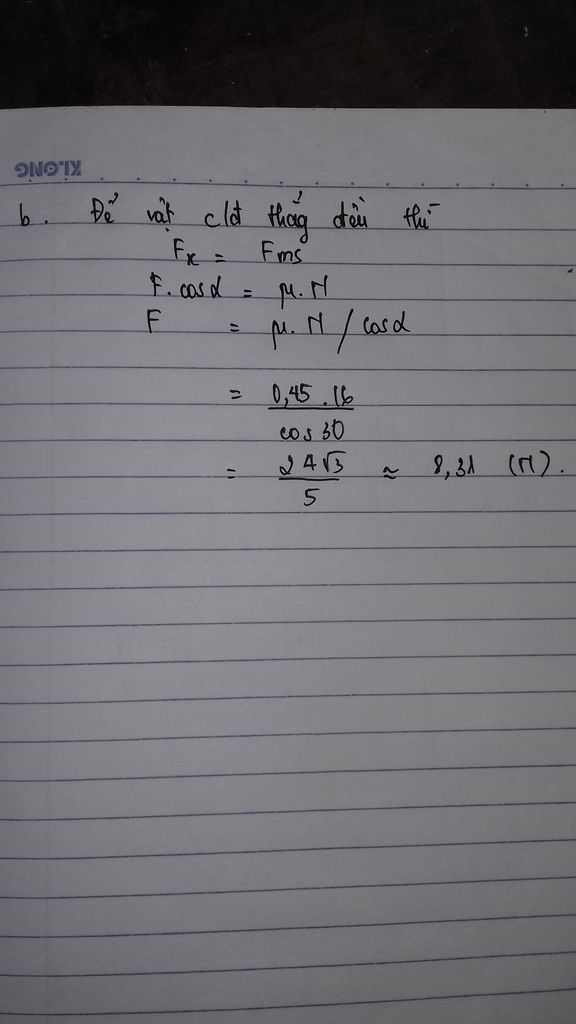 KLONG
b. Để vật c/đ thẳg đều thì
Fx = Fms
F. cosα = μ. N
F = μ. N / cosα
= 0,45 . 16
cos 30
= 24√3 ≈ 8,31 (N).
5